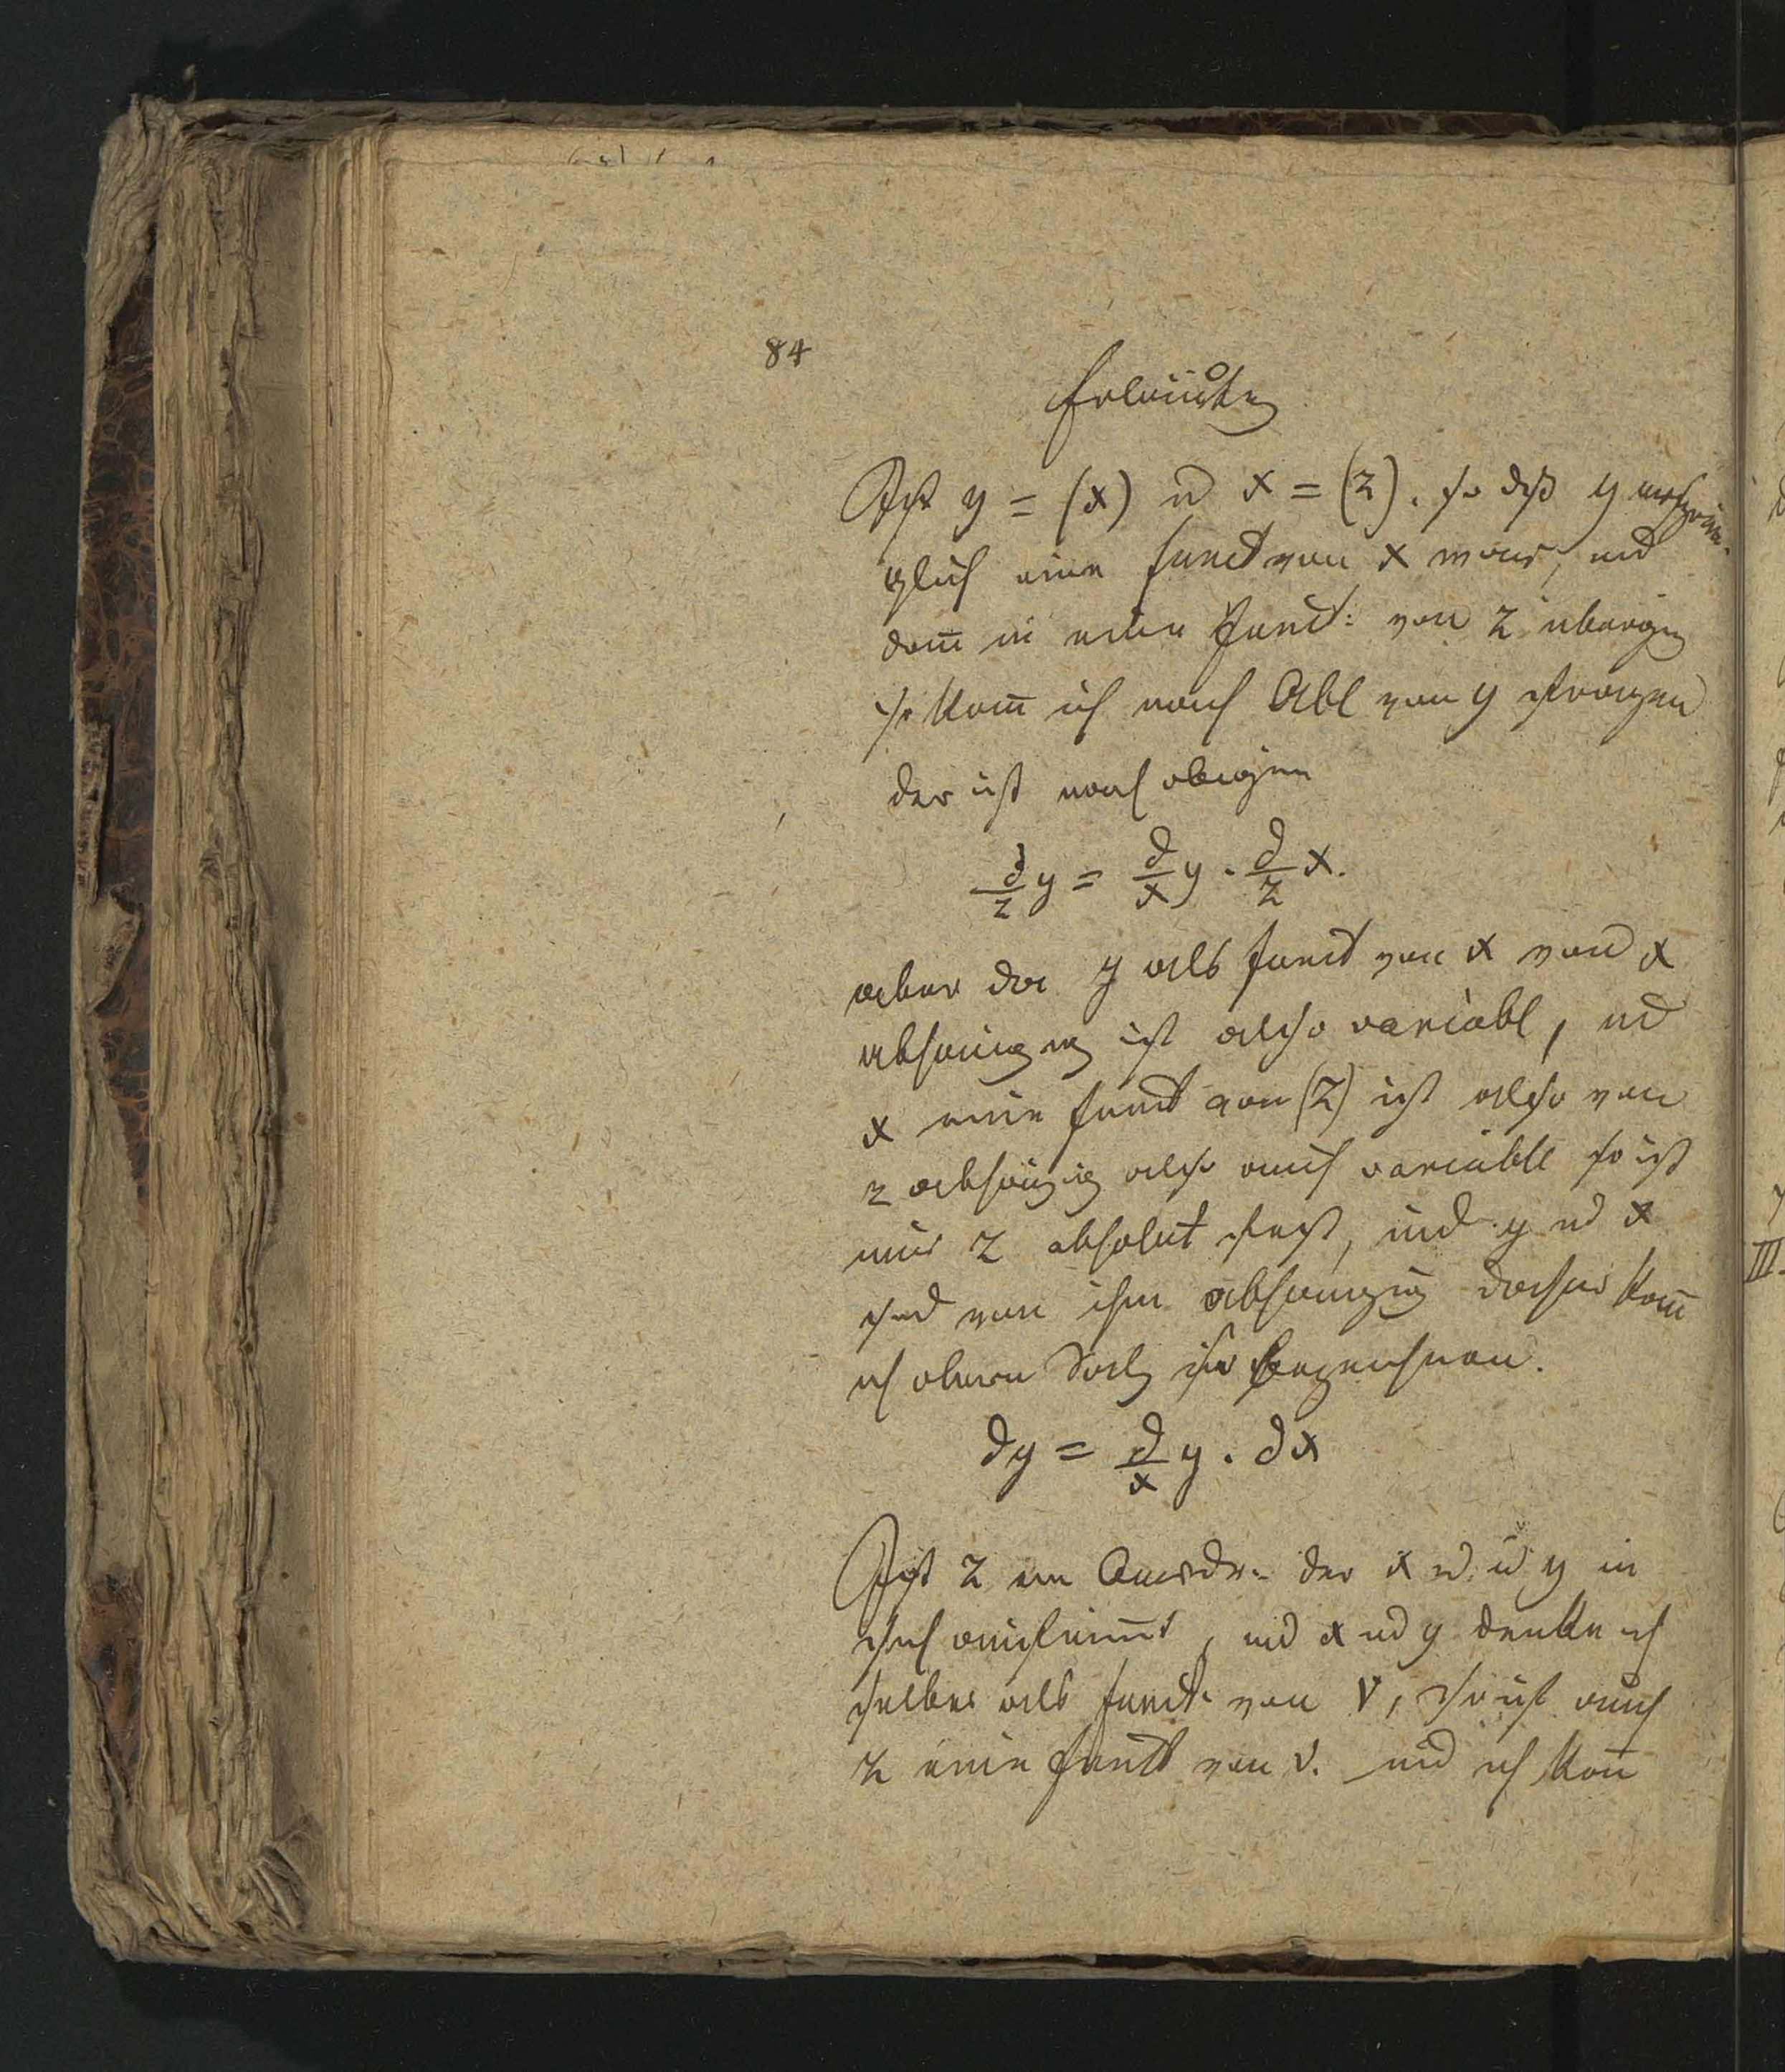 84
Erläuterg
Ist y = (x) u x = (z). so daß y ursprün-
glich eine funct von x war, und
dann in eine Funct: von z überging
so kann ich nach Abl von y fragen
der ist nach obigem
d/z y = d/x y . d/z x.
aber da y als funct von x von x
abhängig ist also variabl, und
x eine funct von (z) ist also von
z abhängig also auch variable so ist
nur z absolut fest, und y und x
sind von ihm abhängig daher kann
ich obern Satz so bezeichnen.
dy = d/x y . dx
Ist z ein Ausdr: der x u y in
sich aufnimmt, und x und y denke ich
selber als funct: von v, so ist auch
z eine funct von v. und ich kann
III.